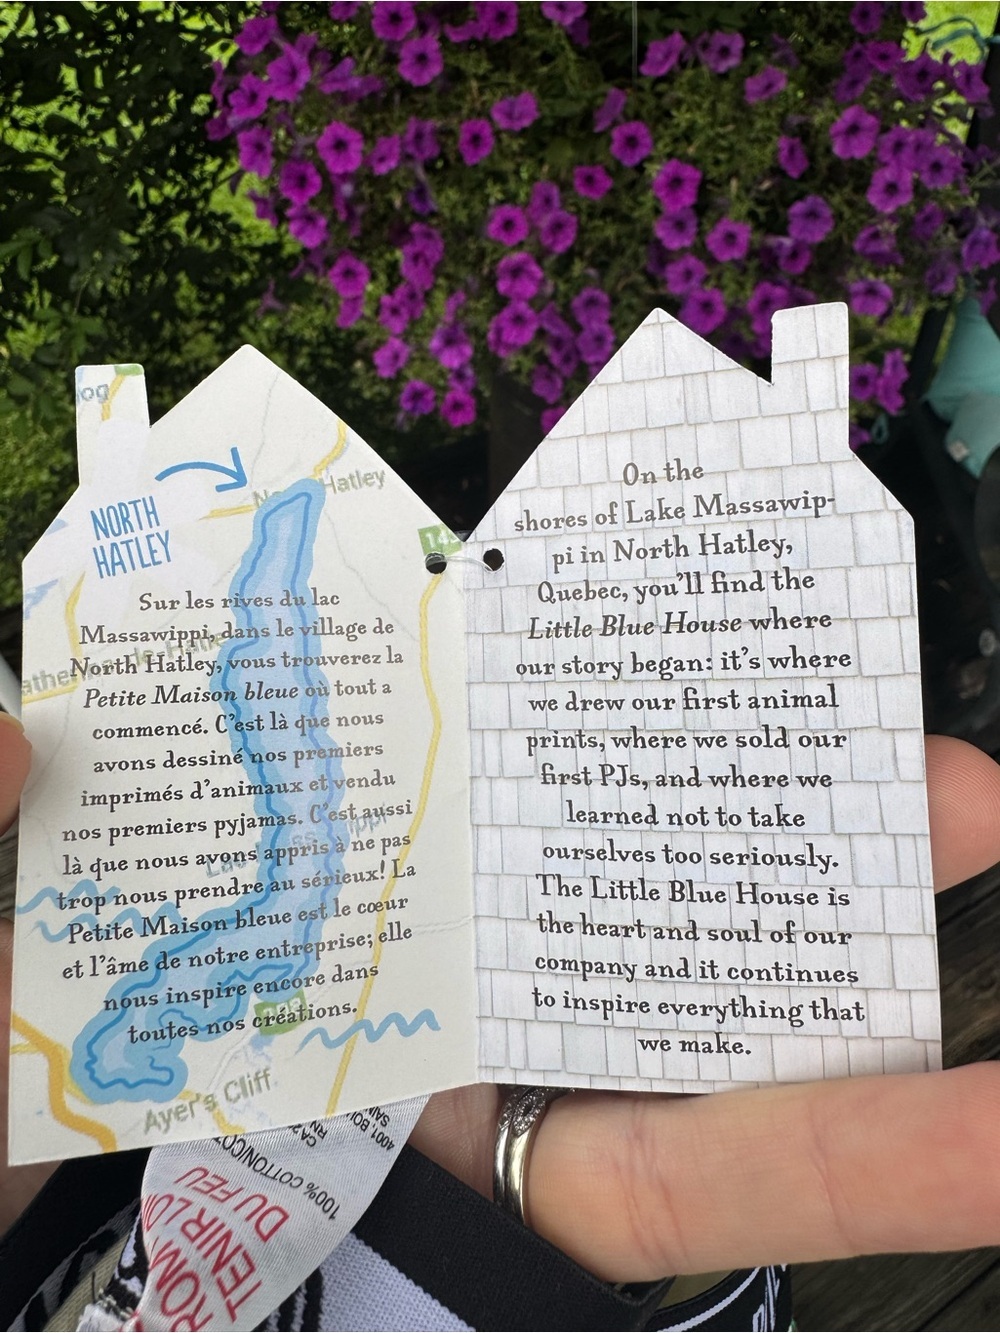 NORTH
HATLEY
Hatley
143
Sur les rives du lac
Massawippi, dans le village de
North Hatley, vous trouverez la
Petite Maison bleue où tout a
commencé. C'est là que nous
avons dessiné nos premiers
imprimés d'animaux et vendu
nos premiers pyjamas. C'est aussi
là que nous avons appris à ne pas
trop nous prendre au sérieux! La
Petite Maison bleue est le cœur
et l'âme de notre entreprise; elle
nous inspire encore dans
toutes nos créations.
Ayer's Cliff
On the
shores of Lake Massawip-
pi in North Hatley,
Quebec, you'll find the
Little Blue House where
our story began: it's where
we drew our first animal
prints, where we sold our
first PJs, and where we
learned not to take
ourselves too seriously.
The Little Blue House is
the heart and soul of our
company and it continues
to inspire everything that
we make.
100% COTTON/COT
TENIR LOI
DU FEU
4001, BOU